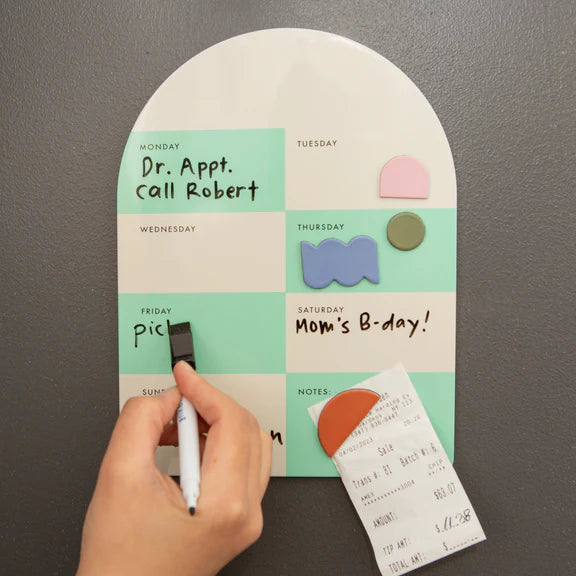 MONDAY
Dr. Appt.
Call Robert
TUESDAY
WEDNESDAY
THURSDAY
FRIDAY
SATURDAY
Mom's B-day!
NOTES:
04/02/2023 20:20
Sale
Trans #: 61 Batch #: 6
AMEX CHIP
************3004
AMOUNT: $63.07
TIP AMT: $
TOTAL AMT: $